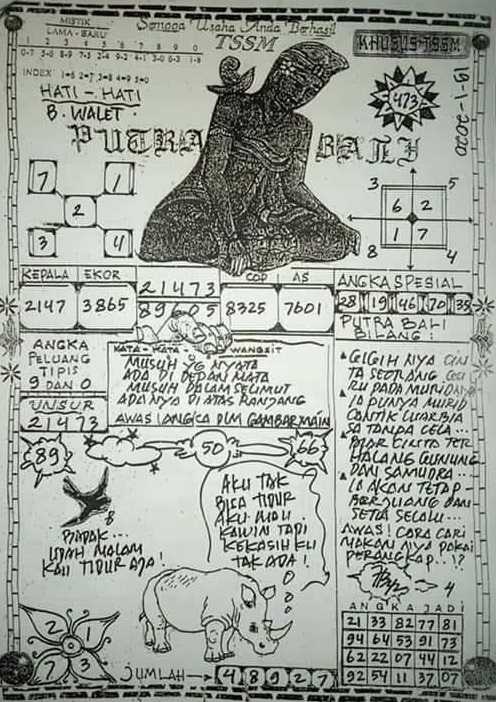 MISTIK
LAMA - BARU
1 2 3 4 5 6 7 8 9 0
INDEX 1=6 2=7 3=8 4=9 5=0
HATI - HATI
B. WALET
Semoga Usaha Anda Berhasil
TSSM
KHUSUS TSSM
473
19-1-2020
PUTRA BALI
7 1
2
3 4
3 5
6 2
1 7
8 4
KEPALA EKOR
2147 3865
21473
89605
COP AS
8325 7601
ANGKA SPESIAL
28 19 46 70 35
ANGKA
PELUANG
TIPIS
9 DAN 0
UNSUR
21473
KATA - KATA WANGSIT
MUSUH YG NYATA
ADA DI DEPAN MATA
MUSUH DALAM SELIMUT
ADANYA DI ATAS RANJANG
AWAS ANGKA DLM GAMBAR MAIN
PUTRA BALI
BILANG:
GIGIH NYA CIN
TA SEORANG
RU PADA MURIDNYA
IA PUNYA MURID
CANTIK LUAR BIA
SA TANPA CELA...
BIAR CINTA TER
HALANG GUNUNG
DAN SAMUDRA...
IA AKAN TETAP
BERJUANG DAN
SETIA SELALU...
AWAS! CARA CARI
MAKAN NYA PAKAI
PERANGKAP..!?
89
50
66
BAPAK...
UDAH MALAM
KAU TIDUR AJA!
AKU TAK
BISA TIDUR
AKU MAU
KAWIN TAPI
KEKASIH KU
TAK ADA!
4
2 1
7 3
JUMLAH → 4 8 9 2 7
ANGKA JADI
21 33 82 77 81
94 64 53 91 73
62 22 07 44 12
92 54 11 37 07